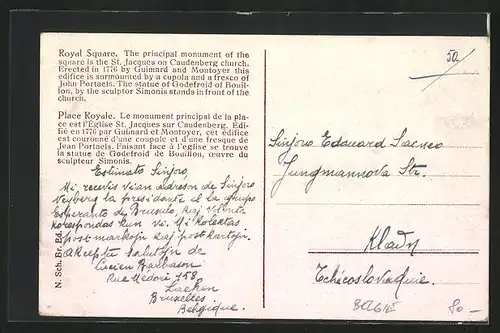 Royal Square. The principal monument of the
square is the St. Jacques on Caudenberg church.
Erected in 1776 by Guimard and Montoyer this
edifice is surmounted by a cupola and a fresco of
John Portaels. The statue of Godefroid of Bouil-
lon, by the sculptor Simonis stands in front of the
church.
Place Royale. Le monument principal de la pla-
ce est l'Eglise St. Jacques sur Caudenberg. Edi-
fié en 1776 par Guimard et Montoyer, cet édifice
est couronné d'une coupole et d'une fresque de
Jean Portaels. Faisant face à l'église se trouve
la statue de Godefroid de Bouillon, œuvre du
sculpteur Simonis.
Estimato Sinjoro,
Mi ricevis vian adreson de Sinjoro
Neyberg la presidanto el la grupo
Esperanto de Bruselo, kaj volonte
korespondas kun vi. Mi kolektas
postmarkojn kaj postkartojn.
Akceptu salutojn de
Lucien Barbason
Rue Médori 158
Laeken
Bruxelles
Belgique.
N. Sch. Br. Ed.
50.
Sinjoro Edouard
Jungmannova Str.
Kladn
Tchécoslovaquie.
BELGIE
80-